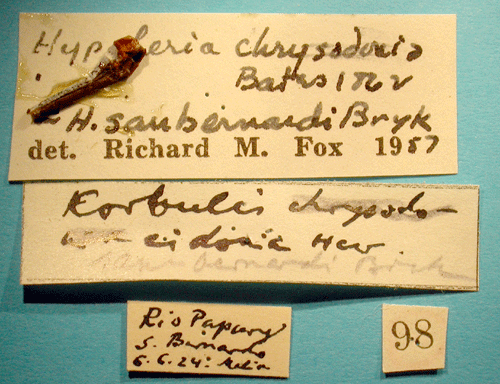 chrysodoris
Bates 1862
H. sanbernardi Bryk
det. Richard M. Fox 1957
Korbulis chrysodo-
eidonia Hew
bernardi Bryk
Rio Papury
S. Bernardo
6.6.24:
98